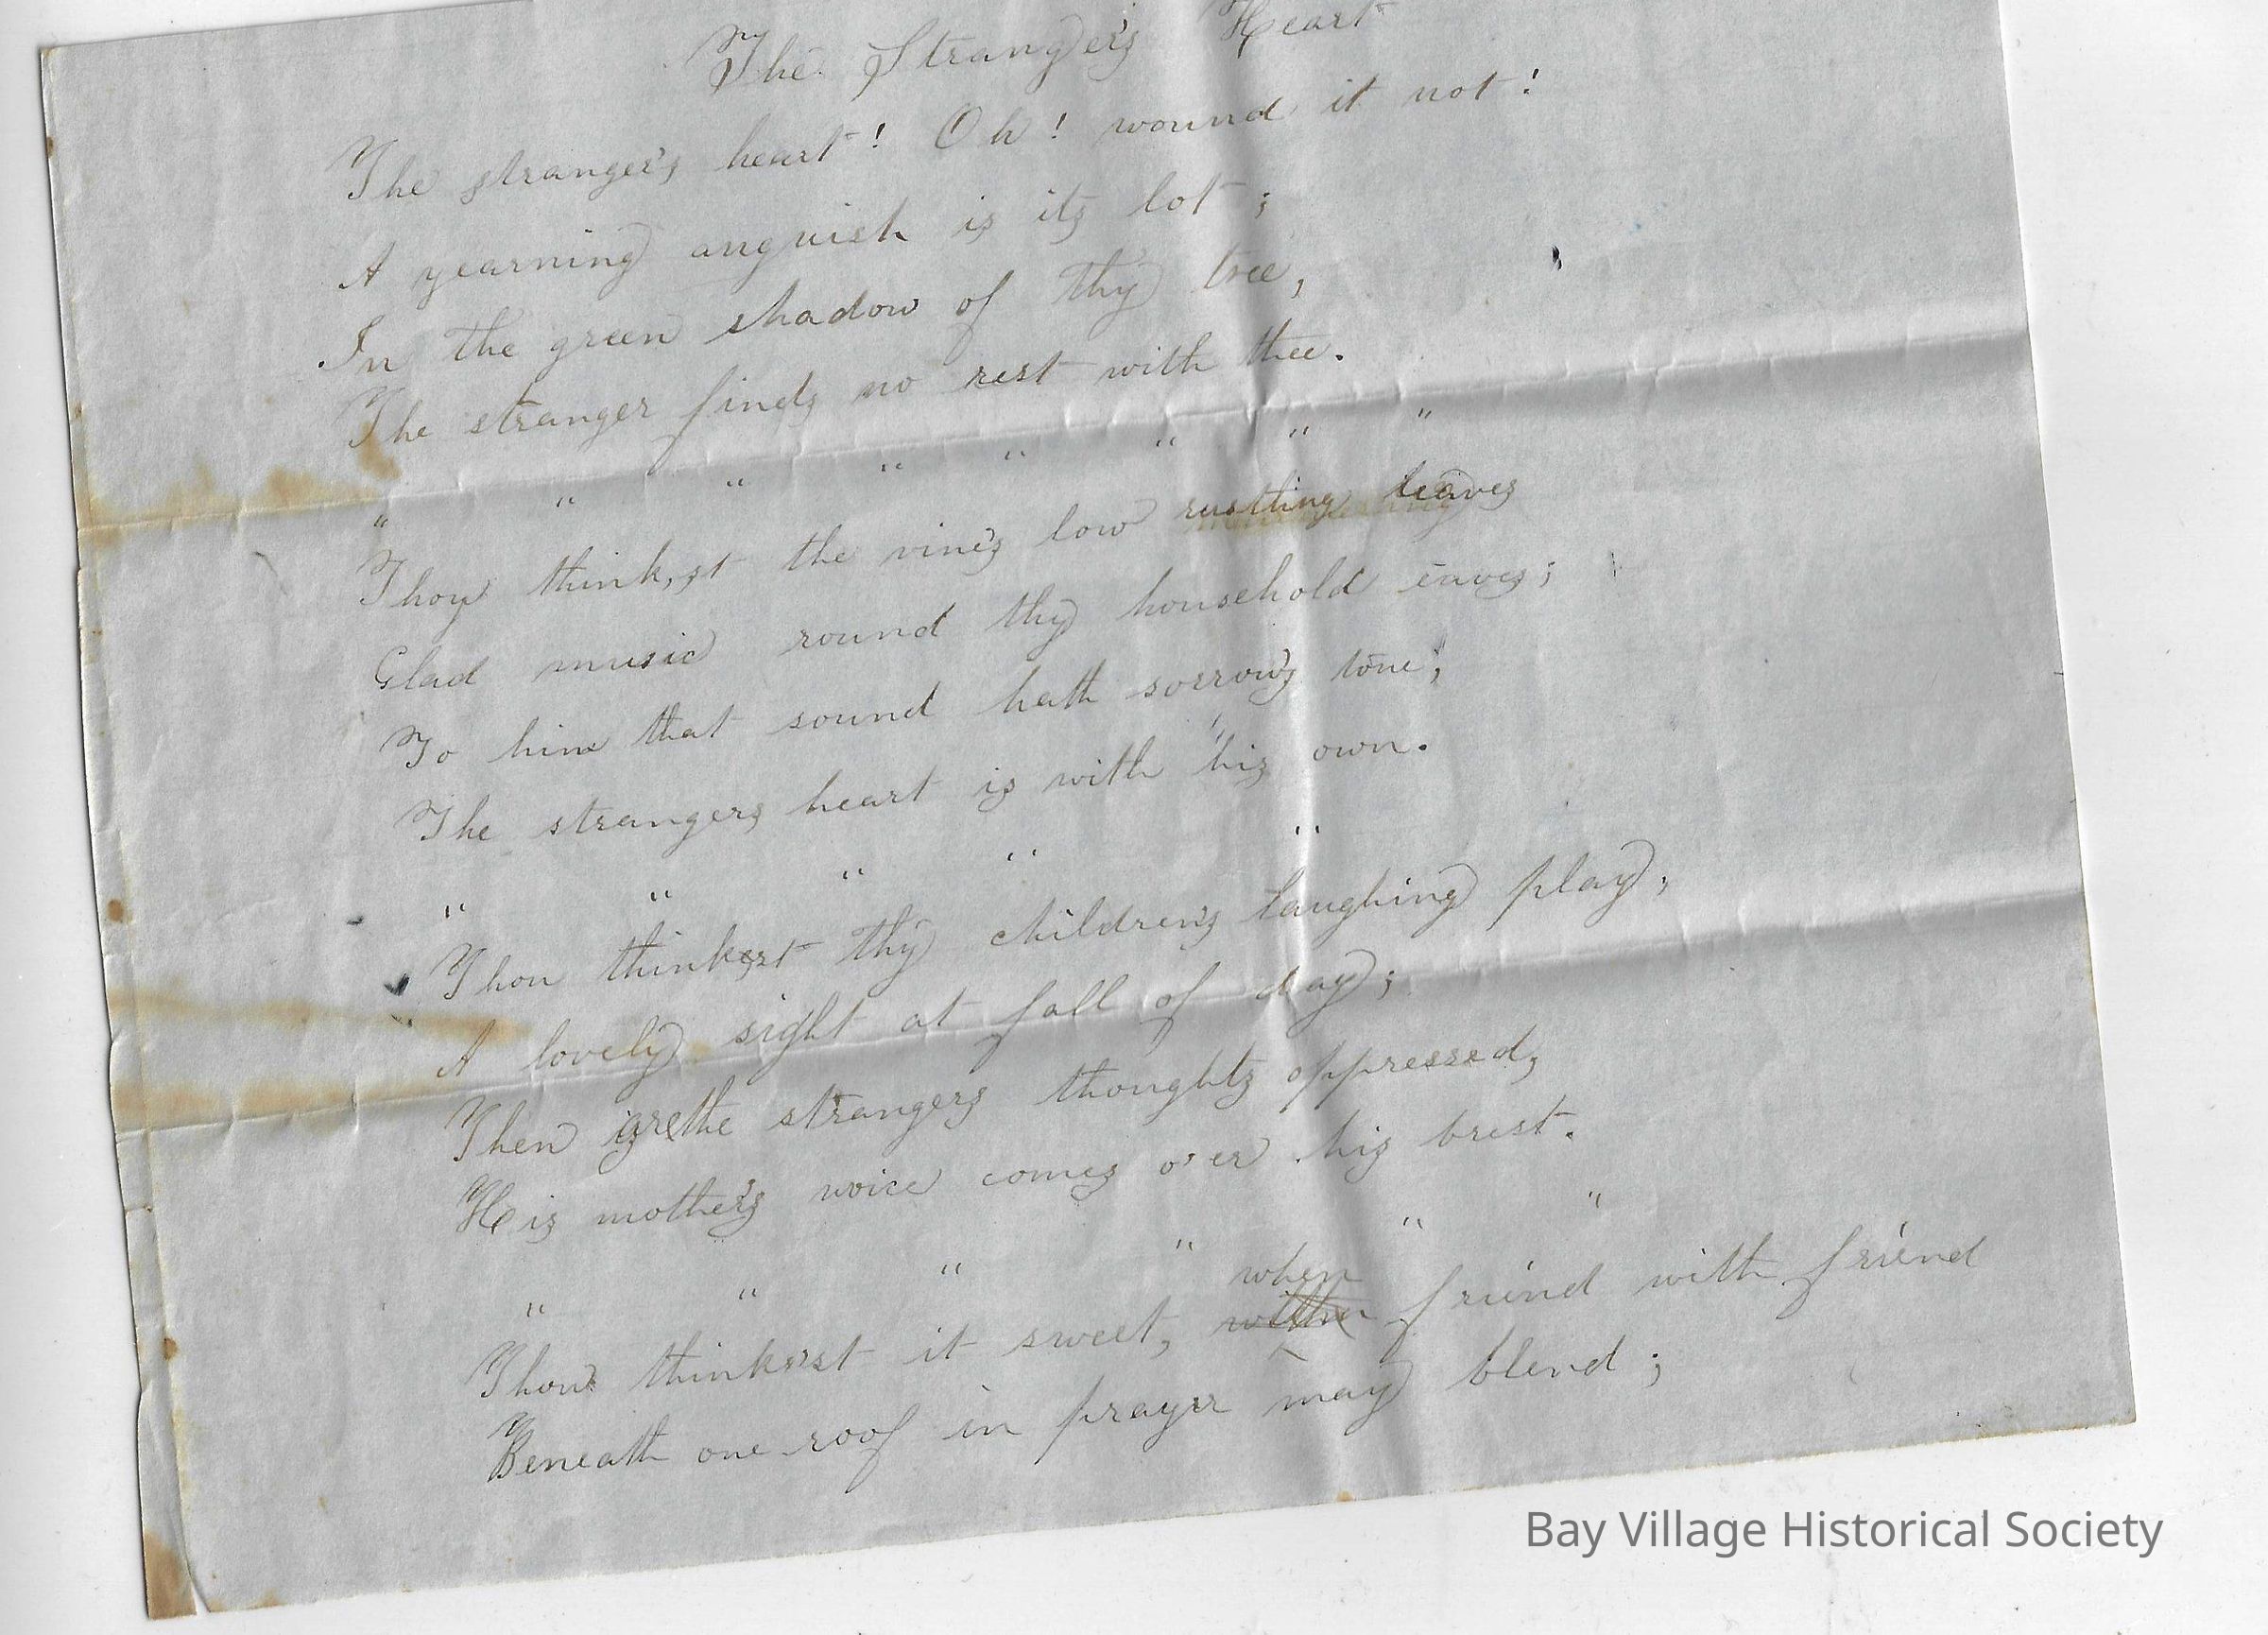 The Stranger's Heart
The stranger's heart! Oh! wound it not!
A yearning anguish is its lot;
In the green shadow of thy tree,
The stranger finds no rest with thee.
" " " " " " " "
Thou think,st the vine's low rustling leaves
Glad music round thy household eaves;
To him that sound hath sorrow's tone;
The strangers heart is with his own.
" " " " "
Thou thinkest thy children's laughing play,
A lovely sight at fall of day;
Then are the strangers thoughts oppressed,
His mother's voice comes o'er his brest.
" " " " " "
when
Thou thinkest it sweet, friend with friend
Beneath one roof in prayer may blend;
Bay Village Historical Society